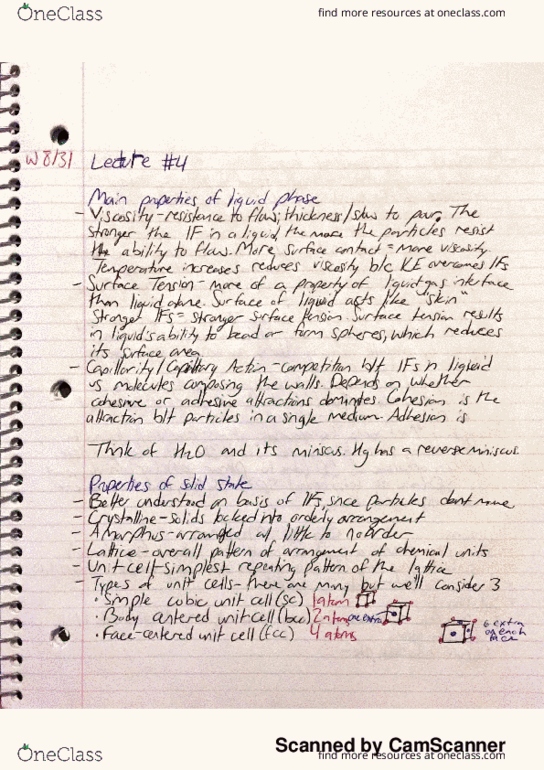 OneClass
find more resources at oneclass.com
W 8/31 Lecture #4
Main properties of liquid phase
- Viscosity - resistance to flow; thickness/slow to pour. The
stronger the IF in a liquid the more the particles resist
the ability to flow. More surface contact = more viscosity.
Temperature increases reduces viscosity b/c KE overcomes IFs
- Surface Tension - more of a property of liquid gas interface
than liquid alone. Surface of liquid acts like "skin"
Stronger IFs = stronger surface tension. Surface tension results
in liquid's ability to bead or form spheres, which reduces
its surface area
- Capillarity / Capillary Action - competition b/t IFs in liquid
vs molecules composing the walls. Depends on whether
cohesive or adhesive attractions dominates. Cohesion is the
attraction b/t particles in a single medium. Adhesion is
Think of H2O and its miniscus. Hg has a reverse miniscus.
Properties of solid state
- Better understood on basis of IFs, since particles dont move
- Crystalline - solids locked into orderly arrangement
- Amorphus - arranged w/ little to no order
- Lattice - overall pattern of arrangement of chemical units
- Unit cell - simplest repeating pattern of the lattice
- Types of unit cells - there are many but we'll consider 3
• Simple cubic unit cell (sc) 1 atom
• Body centered unit cell (bcc) 2 atoms
• Face-centered unit cell (fcc) 4 atoms
6 extra
on each
face
Scanned by CamScanner
OneClass
find more resources at oneclass.com